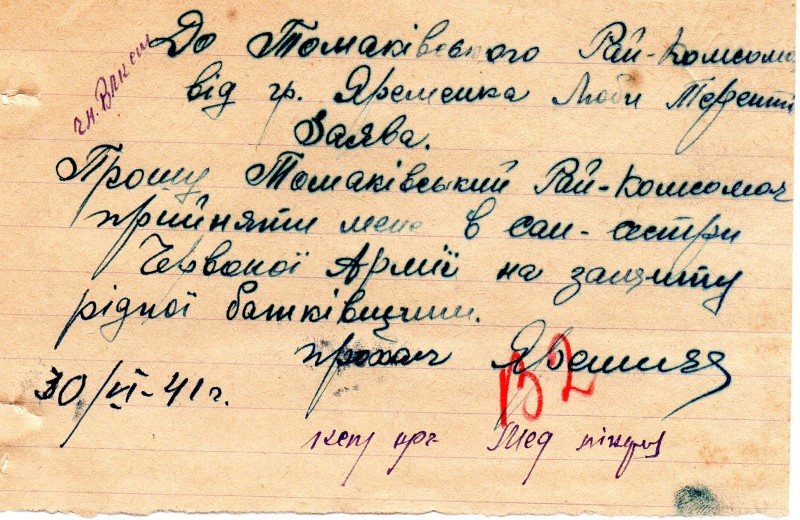 чл. ВЛКСМ
До Томаківського Рай-Комсомо
від гр. Яременка Люби Терентії
Заява.
Прошу Томаківський Рай-Комсомол
прийняти мене в сан-сестри
Червоної Армії на защиту
рідної батьківщини.
прохач
30/VI-41 г.
В2